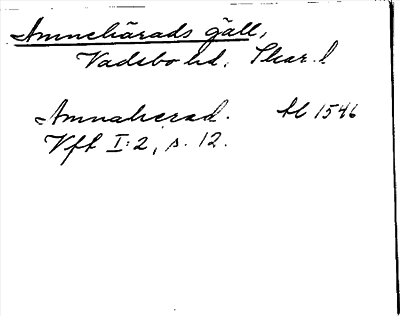 Amnehärads gäll,
Vadsbo hd, Skar. l.
Amnaherad. Ål 1546
Vft I:2, s. 12.